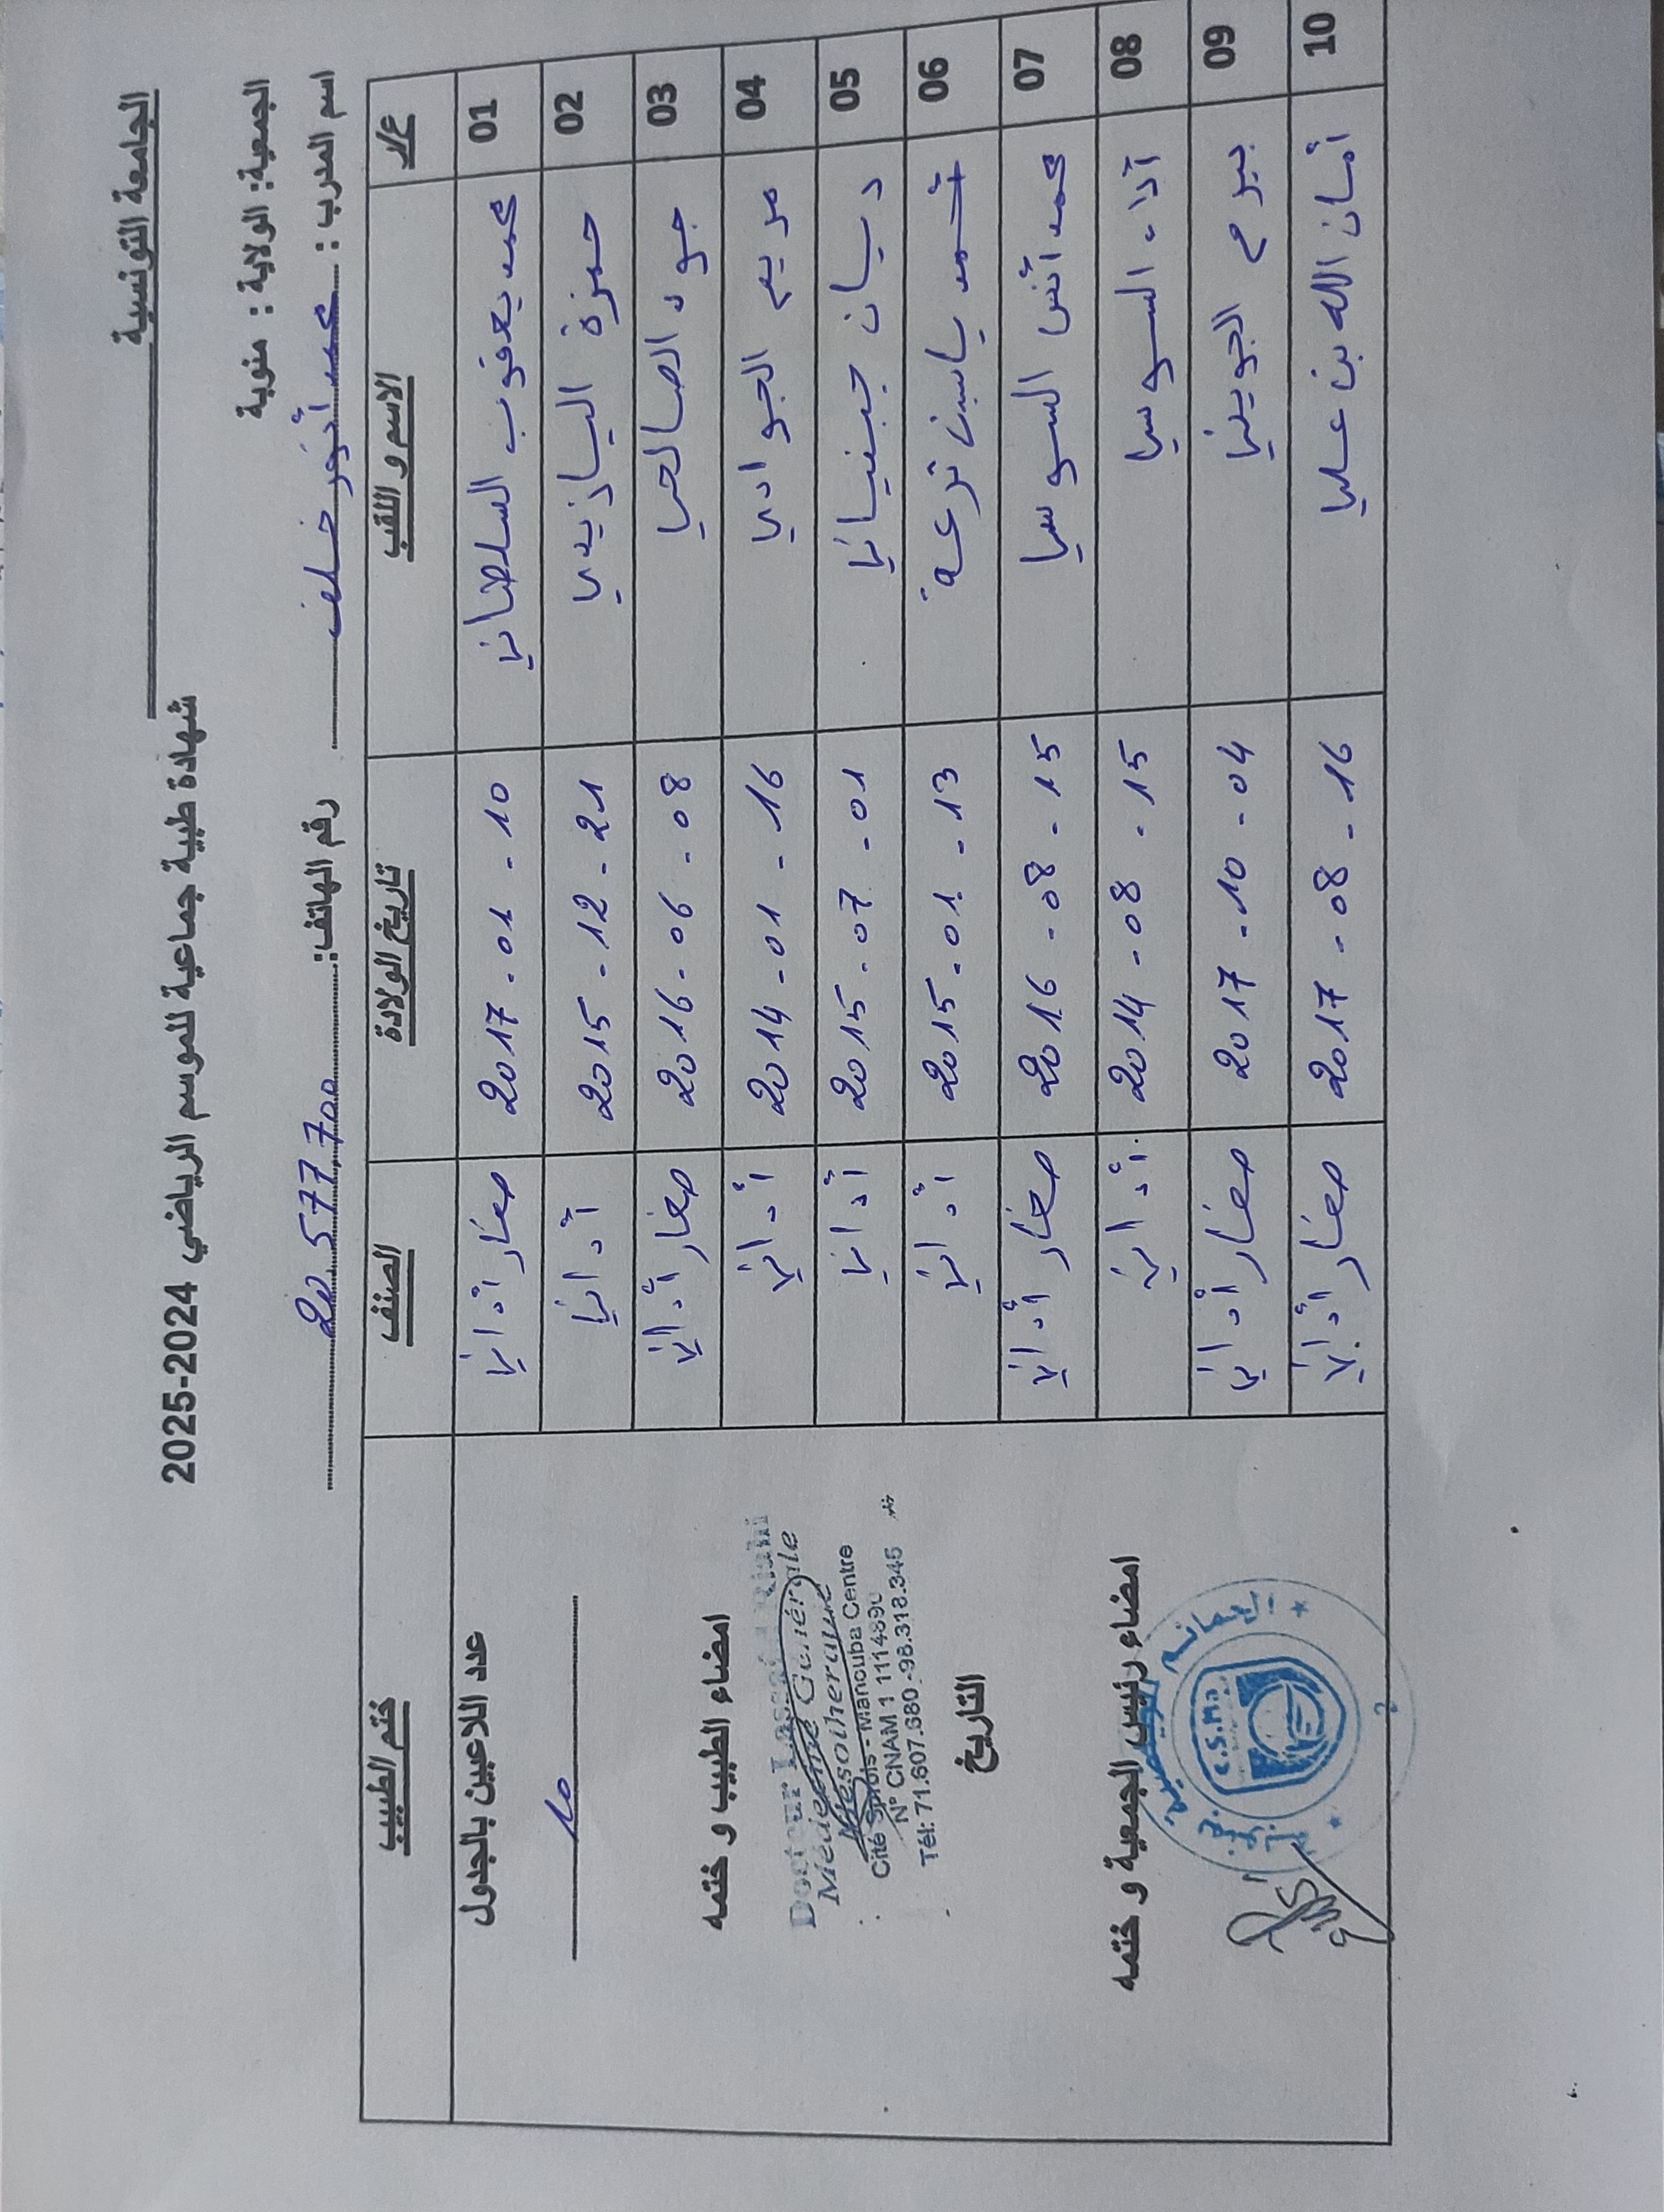 الجامعة التونسية
شهادة طبية جماعية للموسم الرياضي 2024-2025
الجمعية: الولاية : منوبة
اسم المدرب : محمد أنور خلف رقم الهاتف: 20.577.700
ع/ر الاسم و اللقب تاريخ الولادة الصنف ختم الطبيب
01 محمد يعقوب السلطاني 2017-01-10 صغار أداني
02 حمزة اليازيدي 2015-12-21 أداني
03 جود الصالحي 2016-06-08 صغار أداني
04 مريم الجوادي 2014-01-16 أداني
05 ديسان جبنياني 2015-07-01 أداني
06 محمد ياسين ترعة 2015-01-13 أداني
07 محمد أنس السوسي 2016-08-15 صغار أداني
08 آلاء السوسي 2014-08-15 أداني
09 بيرم الجويني 2017-10-04 صغار أداني
10 أمان الله بن علي 2017-08-16 صغار أداني
عدد اللاعبين بالجدول
10
امضاء الطبيب و ختمه
Docteur
Médecine Générale
Mésothérapie
Cité Sprols - Manouba Centre
N° CNAM 1
Tél: 71.607.680 - 98.318.345
التاريخ
امضاء رئيس الجمعية و ختمه
C.S.Mn